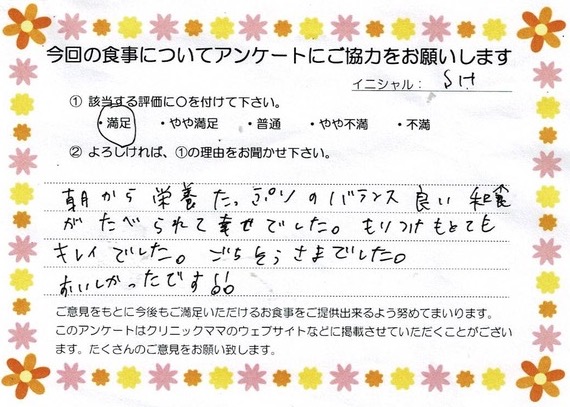 今回の食事についてアンケートにご協力をお願いします
イニシャル： S.H
① 該当する評価に〇を付けて下さい。
・満足 ・やや満足 ・普通 ・やや不満 ・不満
② よろしければ、①の理由をお聞かせ下さい。
朝から 栄養たっぷりのバランス良い 和食
がたべられて幸せでした。もりつけもとても
キレイでした。ごちそうさまでした。
おいしかったです!!
ご意見をもとに今後もご満足いただけるお食事をご提供出来るよう努めてまいります。
このアンケートはクリニックママのウェブサイトなどに掲載させていただくことがござい
ます。たくさんのご意見をお願い致します。